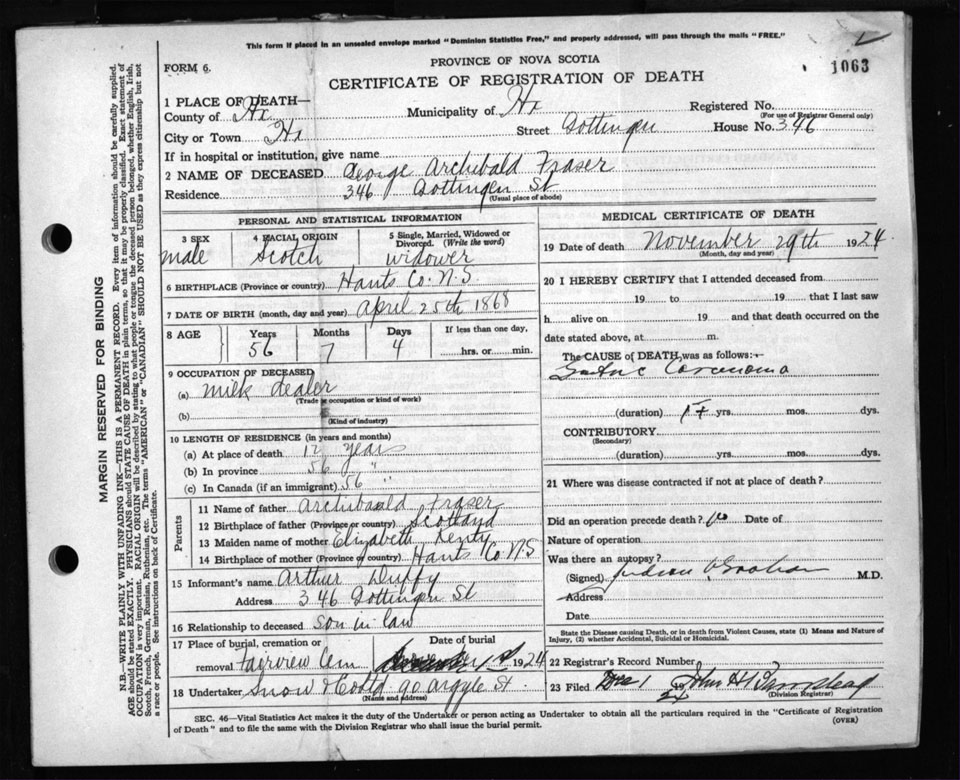 This form if placed in an unsealed envelope marked "Dominion Statistics Free," and properly addressed, will pass through the mails "FREE."
PROVINCE OF NOVA SCOTIA
FORM 6.
CERTIFICATE OF REGISTRATION OF DEATH
1063
1 PLACE OF DEATH—
County of Hx Municipality of Hx Registered No.
(For use of Registrar General only)
City or Town Hx Street Gottingen House No. 346
If in hospital or institution, give name
2 NAME OF DECEASED George Archibald Fraser
Residence 346 Gottingen St
(Usual place of abode)
PERSONAL AND STATISTICAL INFORMATION
3 SEX 4 RACIAL ORIGIN 5 Single, Married, Widowed or Divorced. (Write the word)
male Scotch widower
6 BIRTHPLACE (Province or country) Hants Co. N.S.
7 DATE OF BIRTH (month, day and year) April 25th 1868
8 AGE Years Months Days If less than one day,
56 7 4 hrs. or min.
9 OCCUPATION OF DECEASED
(a) milk dealer
(Trade or occupation or kind of work)
(b)
(Kind of industry)
10 LENGTH OF RESIDENCE (in years and months)
(a) At place of death 12 years
(b) In province 56 "
(c) In Canada (if an immigrant) 56 "
Parents
11 Name of father Archibald Fraser
12 Birthplace of father (Province or country) Scotland
13 Maiden name of mother Elizabeth
14 Birthplace of mother (Province or country) Hants Co N.S
15 Informant's name Arthur Duffy
Address 346 Gottingen St
16 Relationship to deceased Son in law
17 Place of burial, cremation or removal Fairview Cem Date of burial 1st 1924
18 Undertaker Snow & Co Ltd 90 Argyle St.
(Name and address)
MEDICAL CERTIFICATE OF DEATH
19 Date of death November 29th 1924
(Month, day and year)
20 I HEREBY CERTIFY that I attended deceased from
19 to 19 that I last saw
h alive on 19 and that death occurred on the
date stated above, at m.
The CAUSE OF DEATH, was as follows:-
Gastric Carcinoma
(duration) 1+ yrs. mos. dys.
CONTRIBUTORY
(Secondary)
(duration) yrs. mos. dys.
21 Where was disease contracted if not at place of death?
Did an operation precede death? no Date of
Nature of operation
Was there an autopsy?
(Signed) Judson Graham M.D.
Address
Date
State the Disease causing Death, or in death from Violent Causes, state (1) Means and Nature of
Injury, (2) whether Accidental, Suicidal or Homicidal.
22 Registrar's Record Number
23 Filed Dec 1 24 John H
(Division Registrar)
SEC. 46—Vital Statistics Act makes it the duty of the Undertaker or person acting as Undertaker to obtain all the particulars required in the "Certificate of Registration
of Death" and to file the same with the Division Registrar who shall issue the burial permit.
(OVER)
MARGIN RESERVED FOR BINDING
N.B.—WRITE PLAINLY WITH UNFADING INK—THIS IS A PERMANENT RECORD. Every item of information should be carefully supplied.
AGE should be stated EXACTLY. PHYSICIANS should STATE CAUSE OF DEATH in plain terms, so that it may be properly classified. Exact statement of
OCCUPATION is very important. RACIAL ORIGIN will be described by stating to what people or tongue the deceased person belonged, whether English, Irish,
Scotch, French, German, Russian, Ruthenian, etc. The terms "AMERICAN" or "CANADIAN" SHOULD NOT BE USED as they express citizenship but not
a race or people. See instructions on back of Certificate.